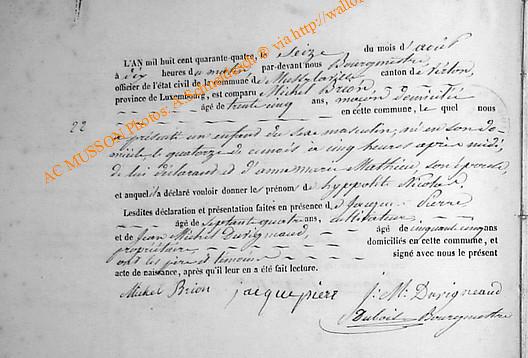 L'AN mil huit cent quarante-quatre, le seize du mois d'août
à dix heures du matin, par-devant nous Bourgmestre
officier de l'état civil de la commune de canton de Virton,
province de Luxembourg, est comparu Michel Brion
âgé de trente cinq ans, maçon domicilié
en cette commune, le quel nous
22
a présenté un enfant du sexe masculin, né en son do-
micile le quatorze de ce mois à cinq heures après midi,
de lui déclarant et d'annemarie Mathieu son épouse
et auquel il a déclaré vouloir donner les prénoms de hyppolite Nicolas.
Lesdites déclaration et présentation faites en présence de Jacque Pierre
âgé de septante quatre ans, cultivateur
et de Jean Michel Duvigneaud, âgé de cinquante cinq ans
propriétaire domiciliés en cette commune, et
ont les père et témoins signé avec nous le présent
acte de naissance, après qu'il leur en a été fait lecture.
Michel Brion jacque pierr j. M. Duvigneaud
Bourgmestre
AC MUSSON Photos: A. ® via http://wallo